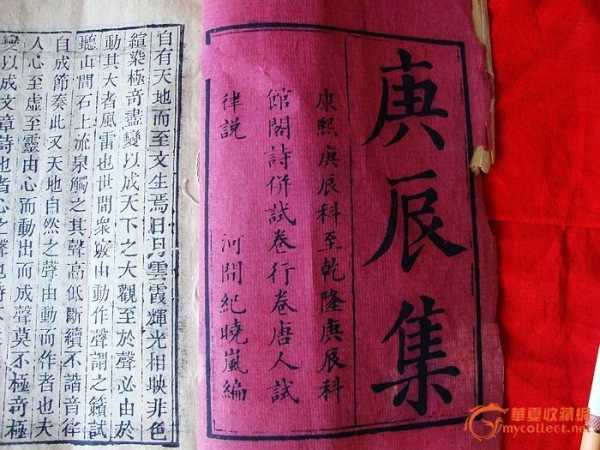 庚辰集
康熙庚辰科至乾隆庚辰科
館閣詩併試卷行卷唐人試
律説 河間紀曉嵐編
自有天地而至文生焉日月雲霞輝光相映非色
縇染極奇盡變以成天下之大觀至於聲必由於
動其大者風雷也世間衆竅由動作聲謂之籟試
聽山間石上流泉觸之其聲高低斷續不諧音律
自成節奏此又天地自然之聲由動而作者也夫
人心至虛至靈由心而動出而成聲莫不極奇極
以成文章詩也者心之聲也
華夏收藏網
mycollect.net